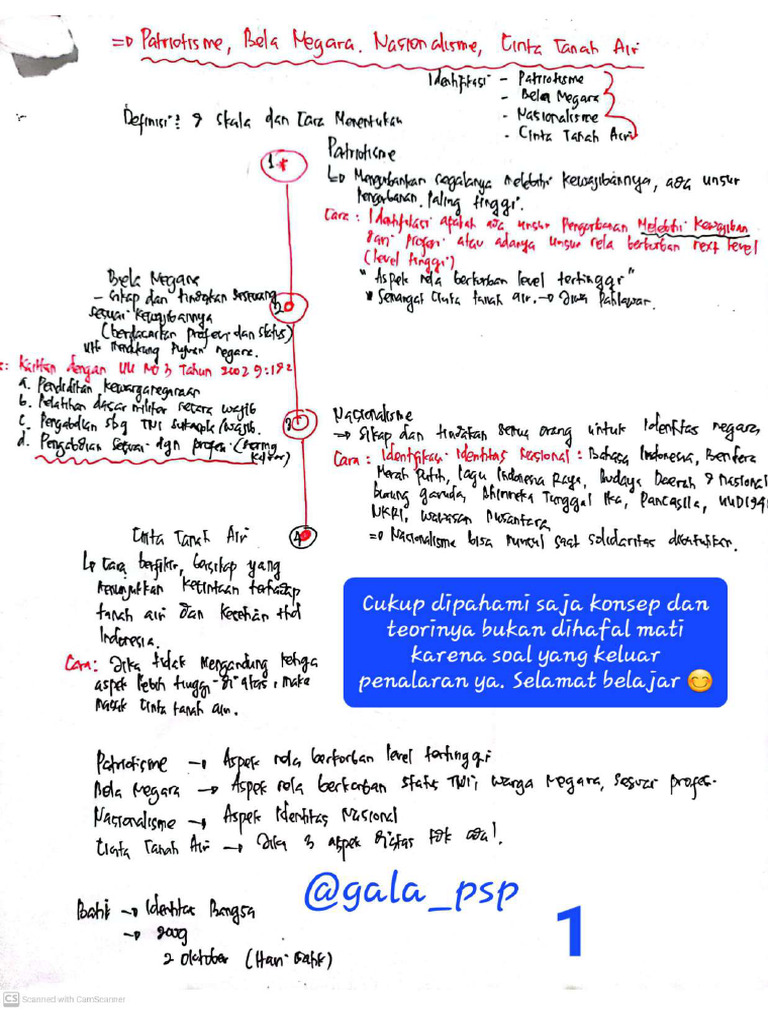 => Patriotisme, Bela Negara, Nasionalisme, Cinta Tanah Air
Identifikasi - Patriotisme
- Bela Negara
- Nasionalisme
- Cinta Tanah Air
Definisi: & Skala dan Cara Menentukan
1.
Patriotisme
↳ Mengorbankan segalanya melebihi kewajibannya, ada unsur
pengorbanan paling tinggi.
Cara : Identifikasi apakah ada unsur pengorbanan Melebihi Kewajiban
dari profesi atau adanya unsur rela berkorban next level
(level tinggi)
"Aspek rela berkorban level tertinggi"
* Semangat cinta tanah air. → Jiwa Pahlawan.
2
Bela Negara
- Sikap dan tindakan seseorang
sesuai kewajibannya
(berdasarkan profesi dan status)
utk mendukung tujuan negara.
: Kaitkan dengan UU No 3 Tahun 2002 9:1&2
a. Pendidikan kewarganegaraan
b. Pelatihan dasar militer secara wajib
c. Pengabdian sbg TNI sukarela/wajib.
d. Pengabdian sesuai dgn profesi (sering
keluar)
3
Nasionalisme
→ Sikap dan tindakan semua orang untuk identitas negara
Cara : Identifikasi Identitas Nasional : Bahasa Indonesia, Bendera
Merah Putih, lagu Indonesia Raya, Budaya Daerah & Nasional
burung garuda, Bhinneka Tunggal Ika, Pancasila, UUD 1945
NKRI, wawasan Nusantara
=> Nasionalisme bisa muncul saat solidaritas dibutuhkan.
4
Cinta Tanah Air
↳ Cara berfikir, bersikap yang
menunjukkan kecintaan terhadap
tanah air dan kesetian thd
Indonesia.
Cara : Jika tidak mengandung ketiga
aspek lebih tinggi di atas, maka
masuk cinta tanah air.
Cukup dipahami saja konsep dan
teorinya bukan dihafal mati
karena soal yang keluar
penalaran ya. Selamat belajar 😊
Patriotisme → Aspek rela berkorban level tertinggi
Bela Negara → Aspek rela berkorban status TNI, warga negara, sesuai profesi.
Nasionalisme → Aspek Identitas Nasional
Cinta Tanah Air → Jika 3 aspek diatas tdk ada!
@gala_psp
1
Batik → Identitas Bangsa
→ 2009
2 Oktober (Hari Batik)
CS Scanned with CamScanner